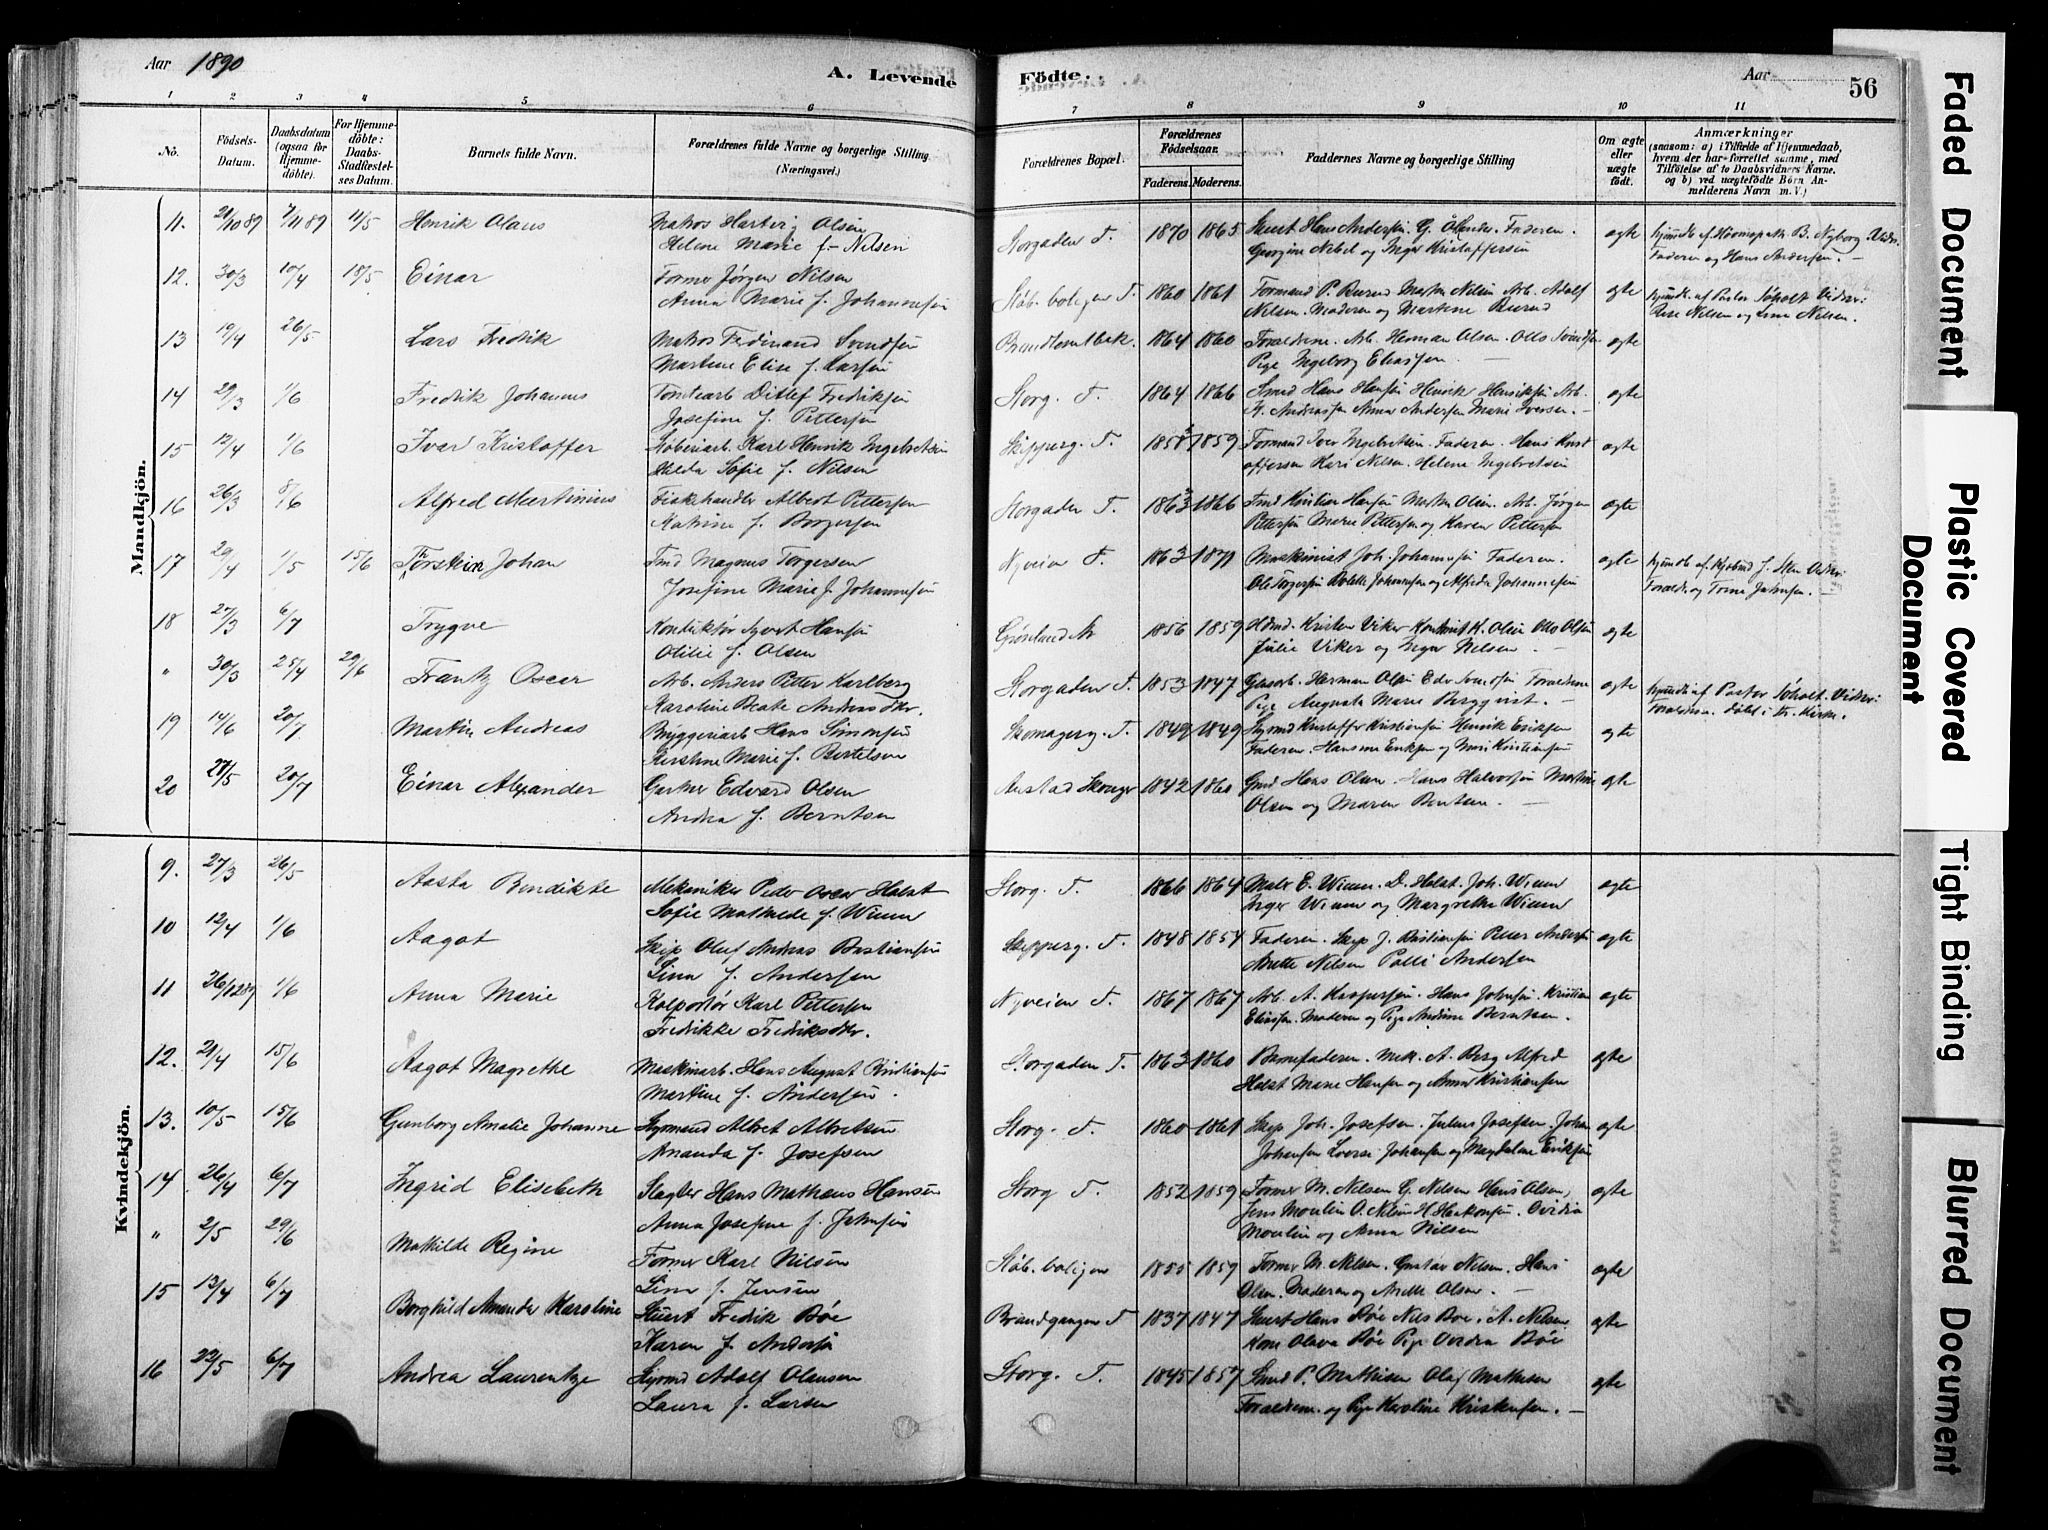 Aar 1890
A. Levende
Födte.
Aar
56
1 2 3 4 5 6 7 8 9 10 11
No.
Födsels-
Datum.
Daabsdatum
(ogsaa for
Hjemme-
döbte).
For Hjemme-
döbte:
Daabs-
Stadfæstel-
ses Datum.
Barnets fulde Navn.
Forældrenes fulde Navne og borgerlige Stilling
(Næringsvei.)
Forældrenes Bopæl.
Forældrenes
Födselsaar.
Faderens. Moderens.
Faddernes Navne og borgerlige Stilling
Om ægte
eller
uægte
födt.
Anmærkninger
(saasom: a) i Tilfælde af Hjemmedaab,
hvem der har forrettet samme, med
Tilföielse af to Daabsvidners Navne,
og b) ved uægtefödte Börn An-
melderens Navn m. V.)
Mandkjön.
11. 21/10 89 7/11 89 11/5 Henrik Olaus Matros Hartvig Olsen Storgaden T. 1870 1865 Stuert Hans Andersen. Faderen. ægte
Helene Marie f. Nilsen Georgine Nebel og Inger Kristoffersen Faderen og Hans Andersen. —
12. 30/3 10/4 18/5 Einar Former Jørgen Nilsen Støb. boliger T. 1860 1861 Formand P. Buerud Martin Nilsen Arb. Adolf ægte
Anna Marie f. Johannesen Nilsen. Moderen og Martine Buerud
13 19/4 26/5 Lars Fredrik Matros Ferdinand Svendsen 1864 1860 Forældrene. Arb. Herman Olsen. Otto Svendsen ægte
Martine Elise f. Larsen Pige Ingeborg Eliassen —
14 29/3 1/6 Fredrik Johannes Tomtearb Ditlef Fredriksen Storg. T. 1864 1866 Smed Hans Hansen Henrik Henriksen Arb. ægte
Josefine f. Pettersen Andreassen Anna Andersen Marie Iversen. —
15 12/4 1/6 Ivar Kristoffer Støberiarb. Karl Henrik Ingebretsen Skipperg. T. 1858 1859 Formand Iver Ingebretsen. Faderen. Hans Krist ægte
Hilda Sofie f. Nilsen offersen Nilsen. Helene Ingebretsen
16 26/3 8/6 Alfred Martinius Fiskehandler Albert Pettersen Storgaden T. 1863 1866 Kristian Hansen Martin Olsen. Arb. Jørgen ægte
Katrine f. Borgersen Pettersen Marie Pettersen og Karen Pettersen
17 29/4 1/5 15/6 Thorstein Johan Magnus Torgersen Nyveien T. 1863 1871 Maskinist Joh. Johannesen Faderen. ægte
Josefine Marie f. Johannesen Ole Torgersen Johannesen og Alfreda Johannesen
18 27/3 6/7 Trygve Konduktør Hansen Grønland 1856 1859 Kristen Viker Olsen Otto Olsen ægte
Otilie f. Olsen Julie Viker og Inger Nilsen. —
" 30/3 25/4 29/6 Frantz Oscar Arb. Anders Petter Karlberg Storgaden T. 1853 1847 Herman Olsen Edv Svendsen Forældrene ægte
Karoline Beate Andersdtr. Pige Augusta Marie Bergqvist. —
19 14/6 20/7 Martin Andreas Bryggeriarb Hans Simonsen Skomagerg. T. 1849 1849 Kristoffer Kristiansen Henrik Eriksen ægte
Kirstine Marie f. Bertelsen Faderen.
20 27/5 20/7 Einar Alexander Gartner Edvard Olsen Austad Skouger 1842 1860 Hans Olsen. Hans Halvorsen Martin ægte
Andrea f. Berntsen Olsen og Maren Berntsen. —
Kvindekjön.
9. 27/3 26/5 Aasta Bendikte Mekaniker Peder Oscar Holst Storg. T. 1866 1864 Maler E. Wium. D. Holst. Joh. Wium ægte
Sofie Mathilde f. Wium Inger Wium og Margrethe Wium
10 12/4 1/6 Aagot Skip Oluf Andreas Bastiansen Skipperg. T. 1848 1854 Faderen. Skip J. Peder Andersen ægte
Lina f. Andersen Anette Nilsen Andersen
11 26/12 89 1/6 Anna Marie Kolportør Karl Pettersen Nyveien T. 1867 1867 Arb. A. Kaspersen. Hans Johnsen. Kristian ægte
Fredrikke Fredriksdtr. Moderen og Pige Andrine Berntsen.
12. 21/4 15/6 Aagot Magrethe Maskinarb. Hans August Kristiansen Storgaden T. 1863 1860 Barnefaderen. Mek. A. Berg Alfred ægte
Martine f. Andersen. Holst Marie Hansen og Anna Kristiansen
13. 10/5 15/6 Gunborg Amalie Johanne Styrmand Albret Albretsen Storg. T. 1860 1861 Skip Joh. Josefsen. Julius Josefsen. Johan ægte
Amanda f. Josefsen Johansen Johansen og Magdalene Eriksen
14 26/4 6/7 Ingrid Elisebeth Slagter Hans Mathæus Hansen Storg T. 1852 1859 Former M. Nilsen G. Nilsen Hans Olsen, ægte
Anna Josefine f. Johnsen Jens Moulin O. Nilsen H. Haakonsen. Ovidia
Moulin og Anna Nilsen
" 2/5 29/6 Mathilde Regine Former Karl Nilsen Støb. boligen 1855 1859 Former M. Nilsen. Gustav Nilsen. Hans ægte
Lina f. Jensen Olsen. Moderen og Anette Olsen. —
15 13/4 6/7 Borghild Amanda Karoline Stuert Fredrik Bøe Brandgangen T 1837 1847 Stuert Hans Bøe Nils Bøe. A. Nilsen ægte
Karen f. Andersen Kone Olava Bøe Pige Ovidia Bøe
16 22/5 6/7 Andrea Laurentze Styrmd Adolf Olausen Storg. T. 1845 1857 Smed P. Mathisen Olaf Mathisen ægte
Laura f. Larsen Forældrene. og Pige Karoline Kristensen. —
Faded Document
Plastic Covered
Document
Tight Binding
Blurred Document